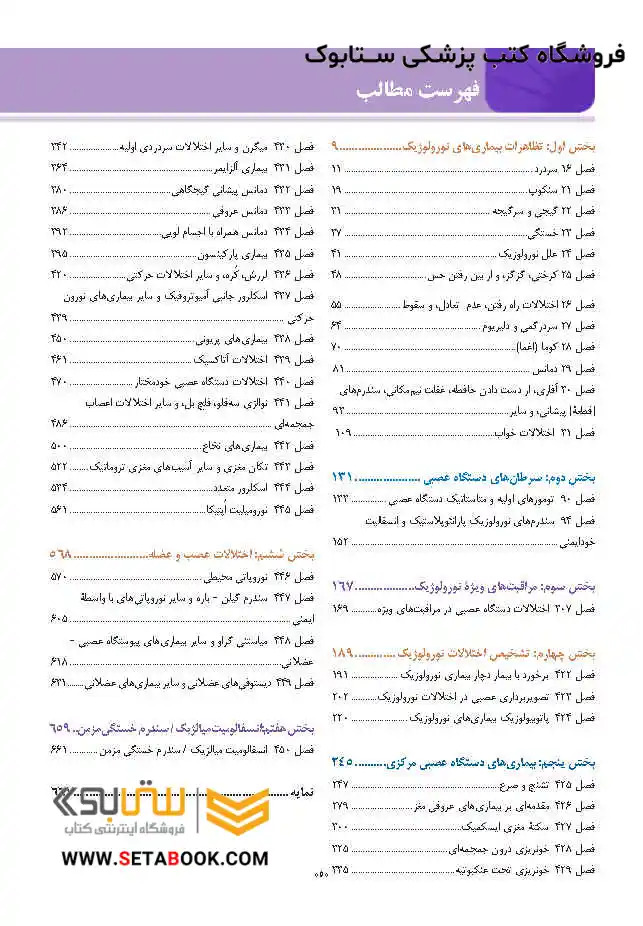 فروشگاه کتب پزشکی ستابوک
فهرست مطالب
بخش اول: تظاهرات بیماری‌های نورولوژیک .................... ۹
فصل ۱۶ سردرد .................... ۱۱
فصل ۲۱ سنکوپ .................... ۱۹
فصل ۲۲ گیجی و سرگیجه .................... ۳۱
فصل ۲۳ خستگی .................... ۳۷
فصل ۲۴ علل نورولوژیک .................... ۴۱
فصل ۲۵ کرختی، گزگز، و از بین رفتن حس .................... ۴۸
فصل ۲۶ اختلالات راه رفتن، عدم تعادل، و سقوط .................... ۵۵
فصل ۲۷ سردرگمی و دلیریوم .................... ۶۴
فصل ۲۸ کوما (اغما) .................... ۷۰
فصل ۲۹ دمانس .................... ۸۱
فصل ۳۰ آفازی، از دست دادن حافظه، غفلت نیم‌مکانی، سندرم‌های
[قطعهٔ] پیشانی، و سایر .................... ۹۳
فصل ۳۱ اختلالات خواب .................... ۱۰۹
بخش دوم: سرطان‌های دستگاه عصبی .................... ۱۳۱
فصل ۹۰ تومورهای اولیه و متاستاتیک دستگاه عصبی .................... ۱۳۳
فصل ۹۴ سندرم‌های نورولوژیک پارانئوپلاستیک و انسفالیت
خودایمنی .................... ۱۵۲
بخش سوم: مراقبت‌های ویژهٔ نورولوژیک .................... ۱۶۷
فصل ۳۰۷ اختلالات دستگاه عصبی در مراقبت‌های ویژه .................... ۱۶۹
بخش چهارم: تشخیص اختلالات نورولوژیک .................... ۱۸۹
فصل ۴۲۲ برخورد با بیمار دچار بیماری نورولوژیک .................... ۱۹۱
فصل ۴۲۳ تصویربرداری عصبی در اختلالات نورولوژیک .................... ۲۰۲
فصل ۴۲۴ پاتوبیولوژیک بیماری‌های نورولوژیک .................... ۲۲۰
بخش پنجم: بیماری‌های دستگاه عصبی مرکزی .................... ۲۴۵
فصل ۴۲۵ تشنج و صرع .................... ۲۴۷
فصل ۴۲۶ مقدمه‌ای بر بیماری‌های عروقی مغز .................... ۲۷۹
فصل ۴۲۷ سکتهٔ مغزی ایسکمیک .................... ۳۰۰
فصل ۴۲۸ خونریزی درون جمجمه‌ای .................... ۳۲۵
فصل ۴۲۹ خونریزی تحت عنکبوتیه .................... ۳۳۵
فصل ۴۳۰ میگرن و سایر اختلالات سردردی اولیه .................... ۳۴۲
فصل ۴۳۱ بیماری آلزایمر .................... ۳۶۴
فصل ۴۳۲ دمانس پیشانی گیجگاهی .................... ۳۸۰
فصل ۴۳۳ دمانس عروقی .................... ۳۸۶
فصل ۴۳۴ دمانس همراه با اجسام لویی .................... ۳۹۲
فصل ۴۳۵ بیماری پارکینسون .................... ۳۹۵
فصل ۴۳۶ لرزش، کُره، و سایر اختلالات حرکتی .................... ۴۲۰
فصل ۴۳۷ اسکلروز جانبی آمیوتروفیک و سایر بیماری‌های نورون
حرکتی .................... ۴۳۹
فصل ۴۳۸ بیماری‌های پریونی .................... ۴۵۰
فصل ۴۳۹ اختلالات آتاکسیک .................... ۴۶۱
فصل ۴۴۰ اختلالات دستگاه عصبی خودمختار .................... ۴۷۰
فصل ۴۴۱ نورالژی سه‌قلو، فلج بل، و سایر اختلالات اعصاب
جمجمه‌ای .................... ۴۸۶
فصل ۴۴۲ بیماری‌های نخاع .................... ۵۰۰
فصل ۴۴۳ تکان مغزی و سایر آسیب‌های مغزی تروماتیک .................... ۵۲۲
فصل ۴۴۴ اسکلروز متعدد .................... ۵۳۴
فصل ۴۴۵ نورومیلیت اُپتیکا .................... ۵۶۱
بخش ششم: اختلالات عصب و عضله .................... ۵۶۸
فصل ۴۴۶ نوروپاتی محیطی .................... ۵۷۰
فصل ۴۴۷ سندرم گیلن - باره و سایر نوروپاتی‌های با واسطهٔ
ایمنی .................... ۶۰۵
فصل ۴۴۸ میاستنی گراو و سایر بیماری‌های پیوستگاه عصبی -
عضلانی .................... ۶۱۸
فصل ۴۴۹ دیستوفی‌های عضلانی و سایر بیماری‌های عضلانی .................... ۶۳۱
بخش هفتم: انسفالومیت میالژیک / سندرم خستگی مزمن .. ۶۵۹
فصل ۴۵۰ انسفالومیت میالژیک / سندرم خستگی مزمن .................... ۶۶۱
نمایه ....................
ستابوک
فروشگاه اینترنتی کتاب
WWW.SETABOOK.COM